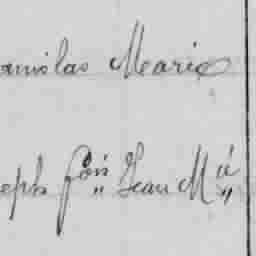 anislas Marie
eph fᵒⁱˢ Jean Mⁱᵉ